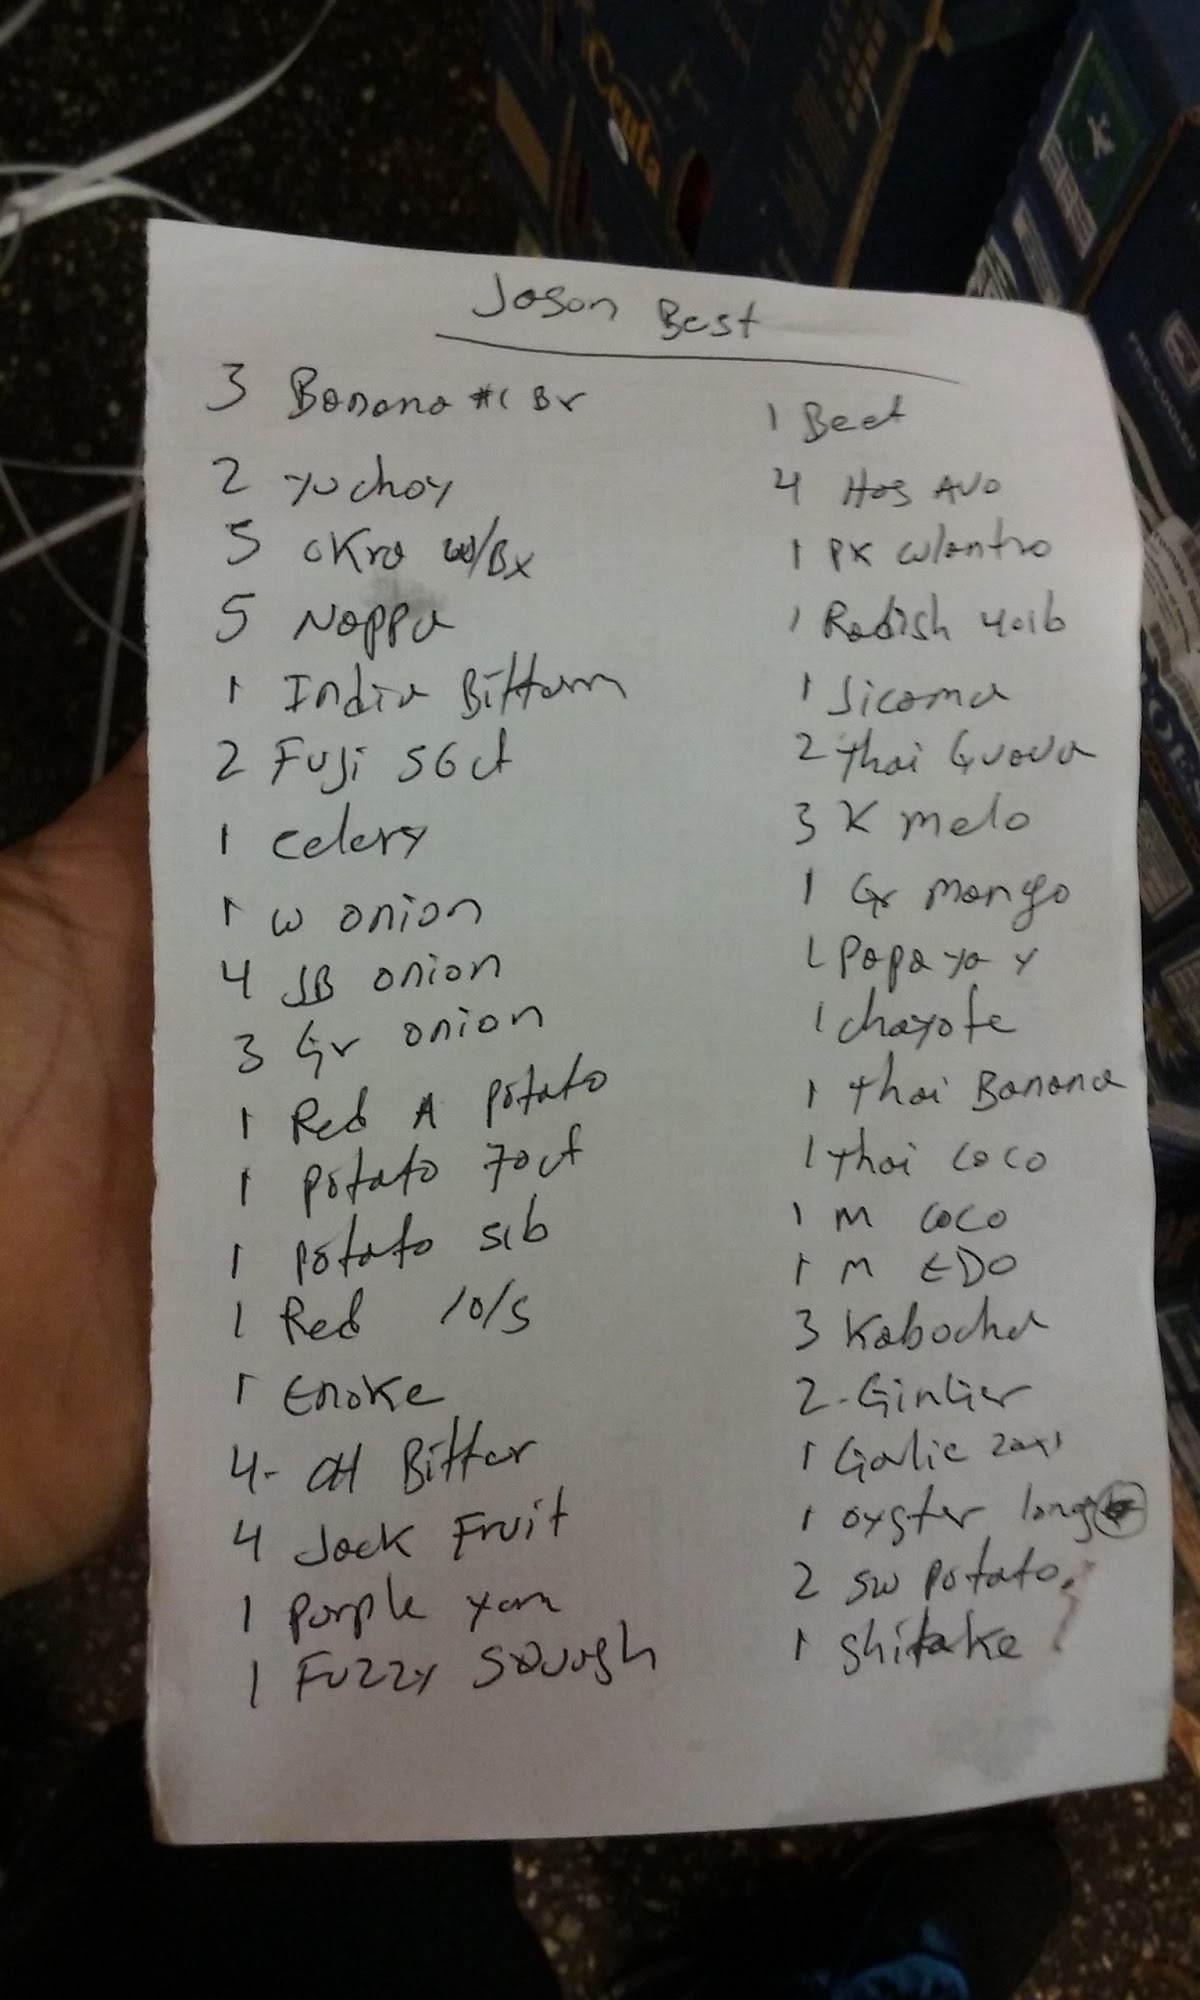 Centa
Jason Best
3 Banana #1 Br
2 yuchoy
5 okra w/Bx
5 Nappa
1 India Bitterm
2 Fuji 56ct
1 celery
1 w onion
4 JB onion
3 Gr onion
1 Red A potato
1 potato 70ct
1 potato 5lb
1 Red 10/5
1 Enoke
4- CH Bitter
4 Jack Fruit
1 Purple yam
1 Fuzzy Squash
1 Beet
4 Has Avo
1 PK cilantro
1 Radish 40lb
1 Jicama
2 Thai Guava
3 K melo
1 Gr mango
1 Papaya Y
1 chayote
1 Thai Banana
1 Thai coco
1 M coco
1 M EDO
3 Kabocha
2-Ginger
1 Garlic
1 oyster long
2 sw potato
1 shitake